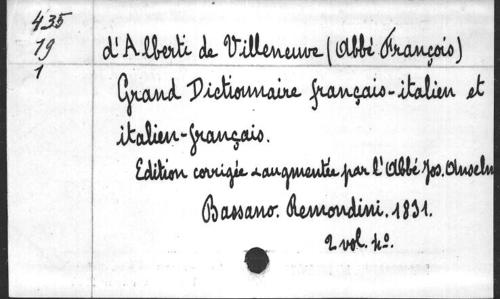 435
19
1
d'Alberti de Villeneuve (Abbé François)
Grand Dictionnaire français-italien et
italien-français.
Edition corrigée & augmentée par l'Abbé Jos. Anselm
Bassano. Remondini. 1831.
2 vol. 4º.